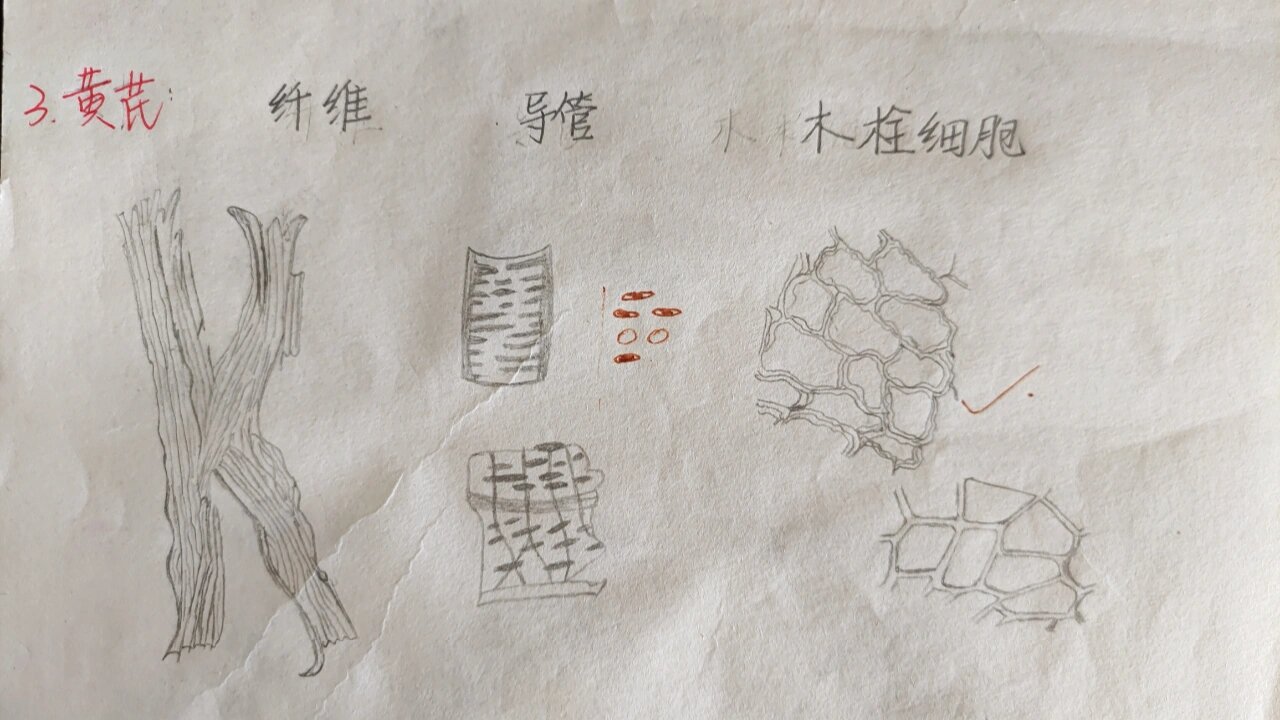 3.黄芪: 纤维 导管 木栓细胞